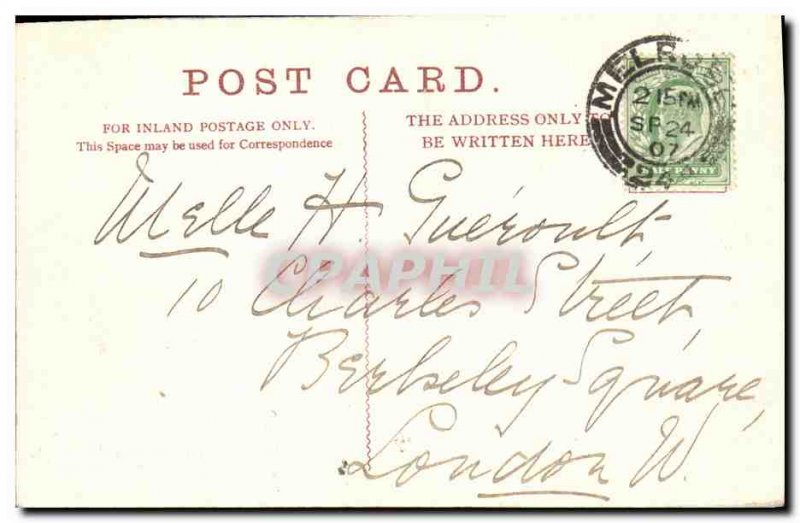 POST CARD.
FOR INLAND POSTAGE ONLY.
This Space may be used for Correspondence
THE ADDRESS ONLY TO
BE WRITTEN HERE
MELROSE
2 15 PM
SP 24
07
24
HALFPENNY
CPAPHIL
Melle H. Guéroult,
10 Charles Street,
Berkeley Square,
London W.